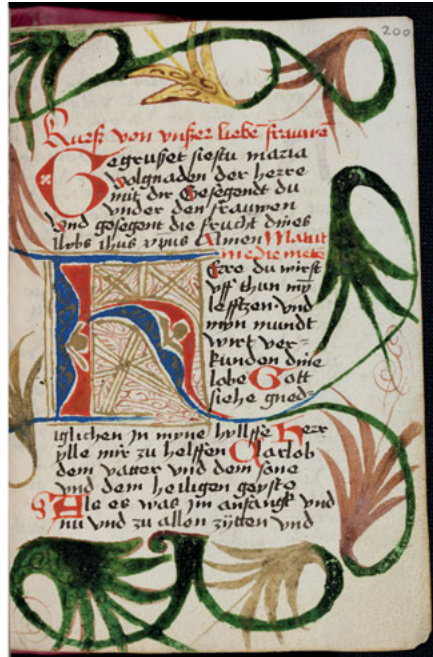 200
Kurß von vnßer liebē frauwē
Gegrusset siestu maria
volgnaden der herre
mit dir Gesegendt du
vnder den frauwen
vnd gesegent die frucht dines
lybs ihus xpus Amen Matut
ine die mette
Herre du wirst
vff thun myn
lefftzen vnd
myn mundt
wirt ver=
kunden dine
lobe Gott
siehe gned=
iglichen jn myne hyllffe Herr
ylle mir zu helffen Glarlob
dem vatter vnd dem sone
vnd dem heiligen geyste
Als es was jm anfangk vnd
nu vnd zu allen zÿtten vnd